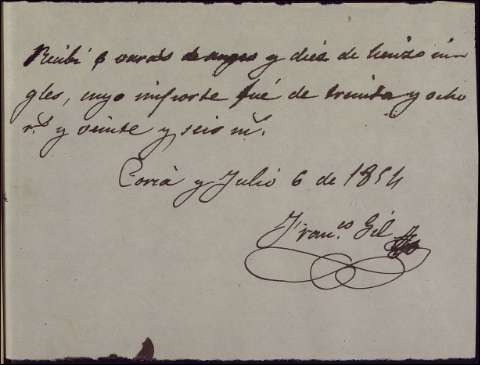 Recibí 6 varas de negro y diez de lienzo in-
gles, cuyo importe fué de treinta y ocho
r.s y veinte y seis m.s
Coria y Julio 6 de 1854
Fran.co Gil